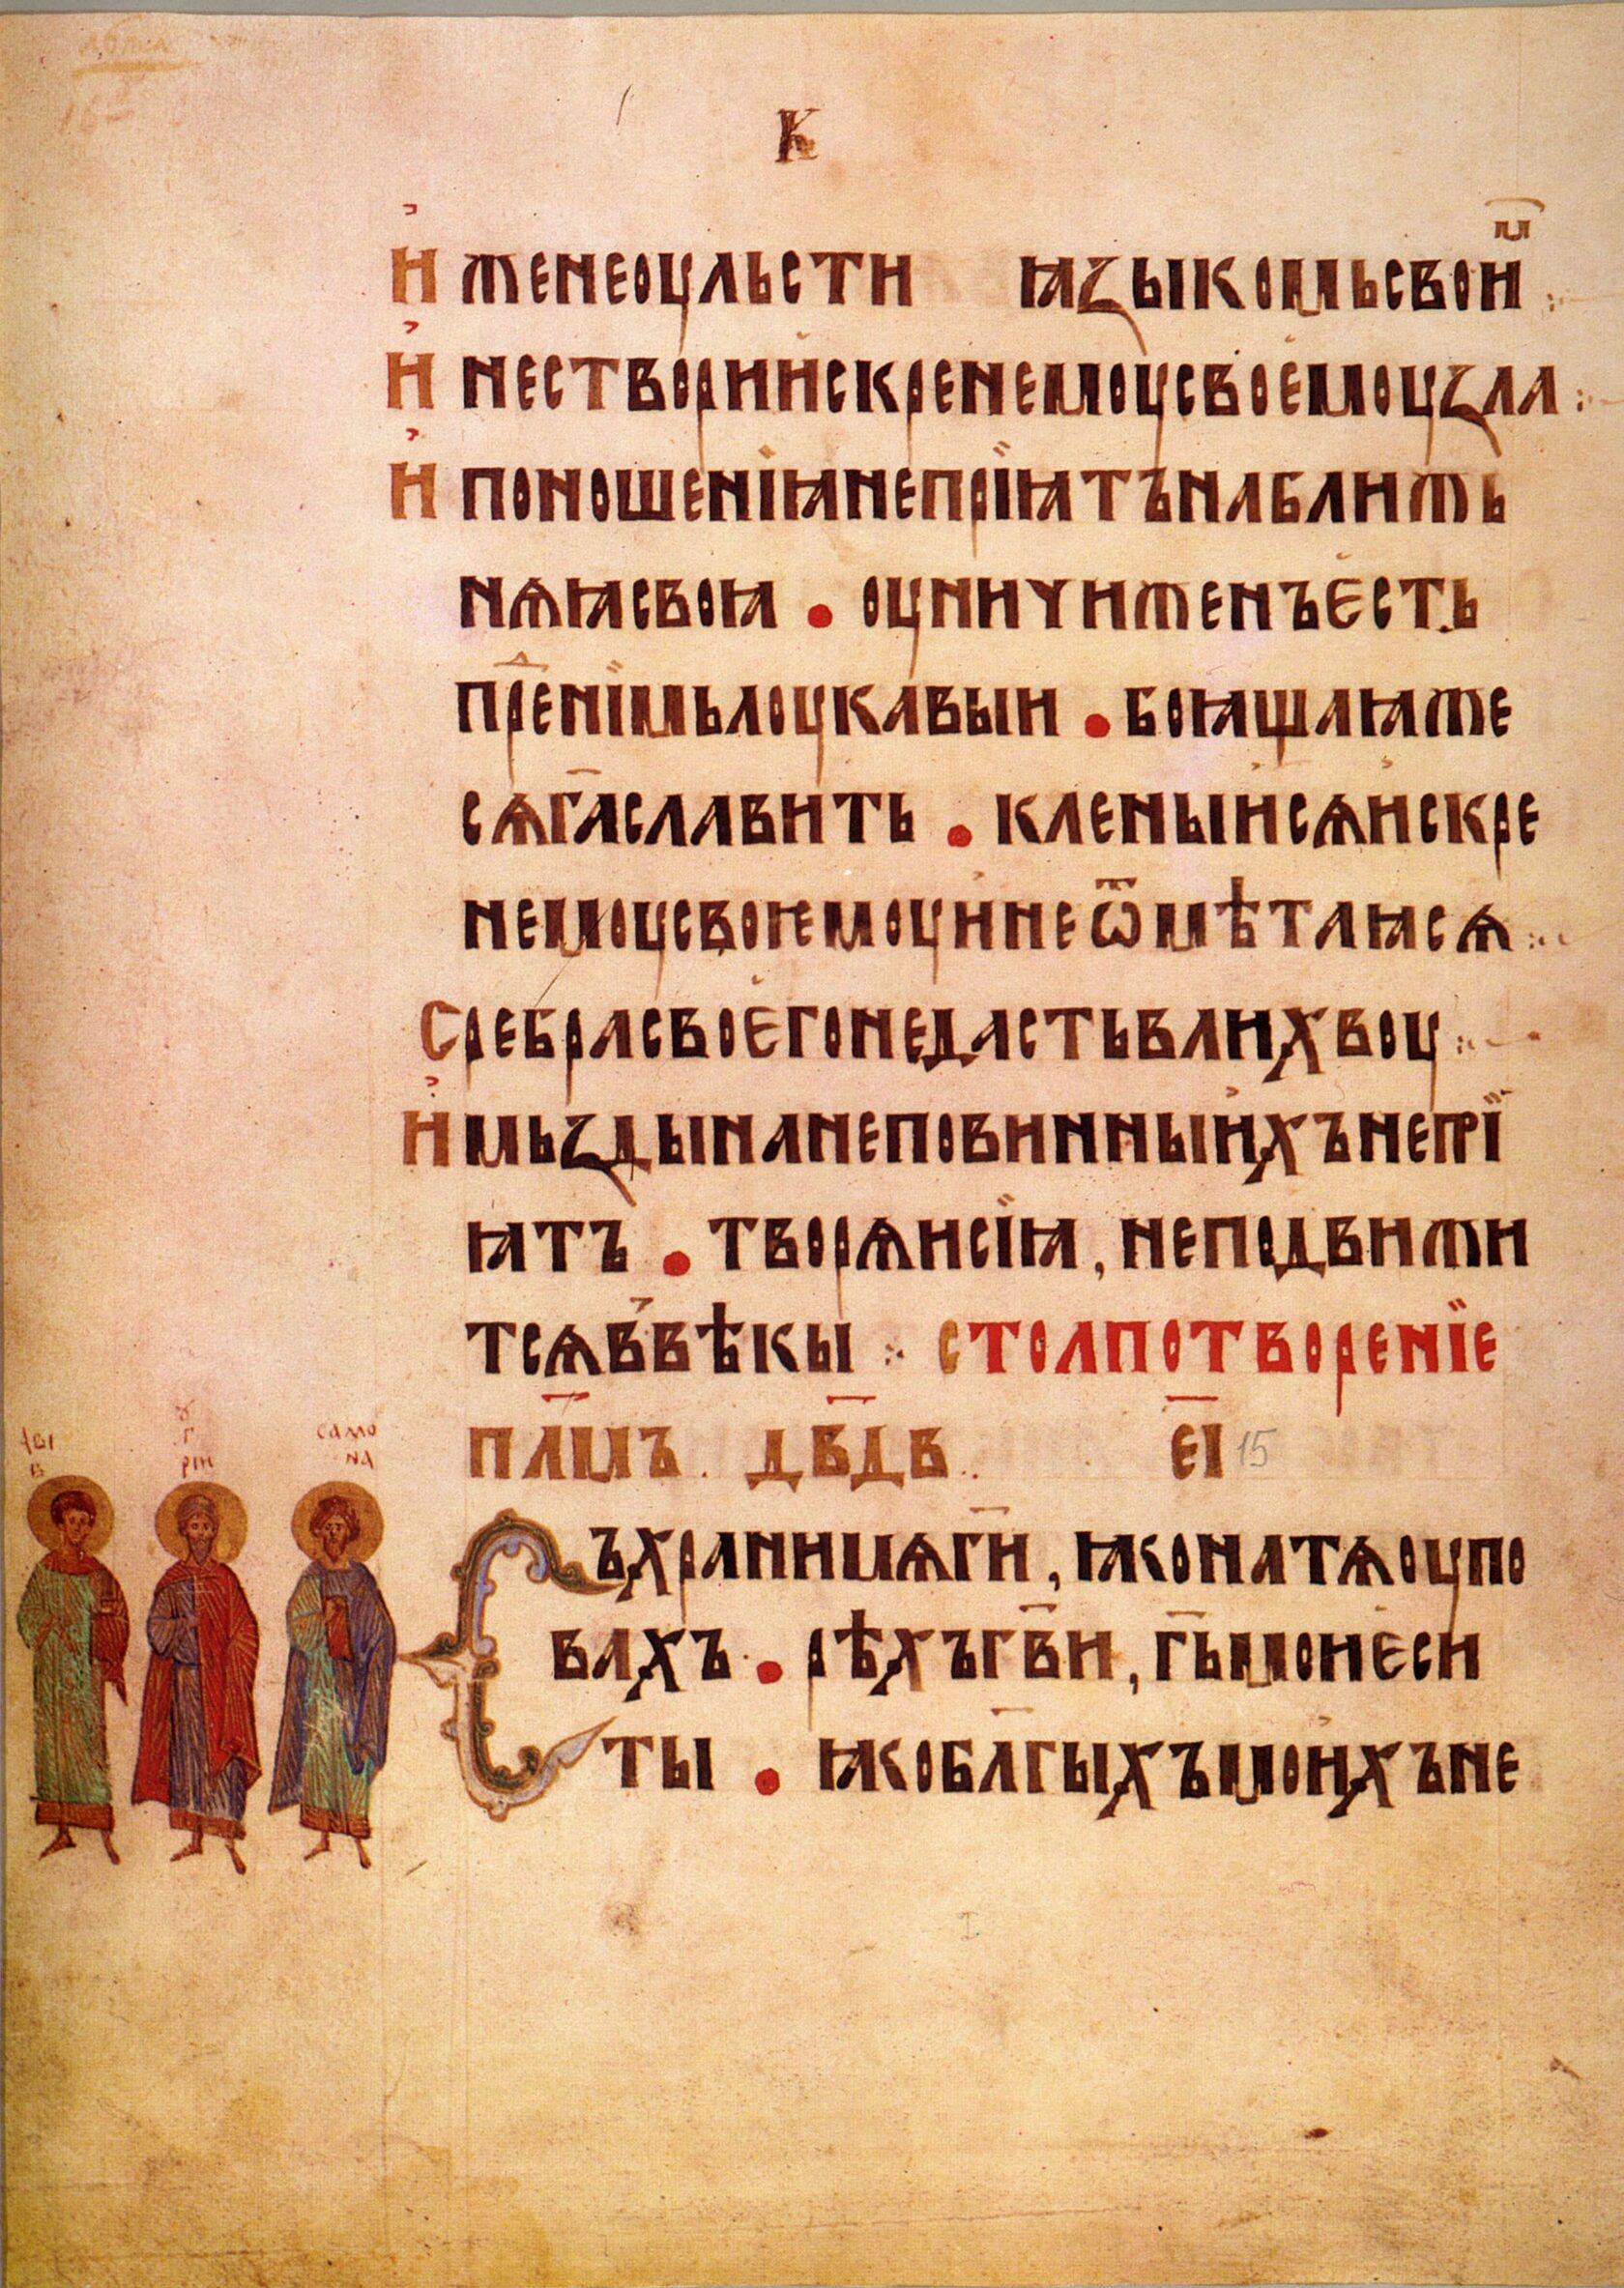 К
Иже не оульсти ꙗзыкомь своиⷨ҇
И не створи искренемоу своемоу зла
И поношениꙗ не прїꙗтъ на ближь
нѧꙗ своꙗ • оуничиженъ есть
преⷣ нїмь лоукавыи • боꙗщаꙗже
сѧ г҃а славить • кленыисѧ искре
немоу своѥмоу и не ѿмѣтаꙗсѧ
Сребра своего не дасть в лихвоу
И мьзды на неповинныихъ не прї
ꙗтъ • творѧи сїꙗ, не подвижи
тсѧ в вѣкы ⁘ столпотворенїе
п҃лмъ . дв҃дв .. е҃і 15
Съхрани мѧ г҃и, ꙗко на тѧ оупо
вахъ • рѣхъ г҃ви, г҃ь мои еси
ты • ꙗко бл҃гыхъ моихъ не
АВІ
В
ГꙊ
РІИ
САМО
НА